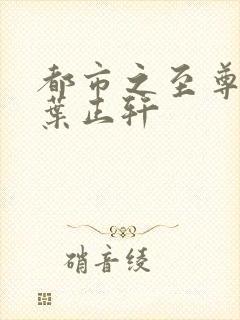 都市之至尊
葉正轩
硝音绫